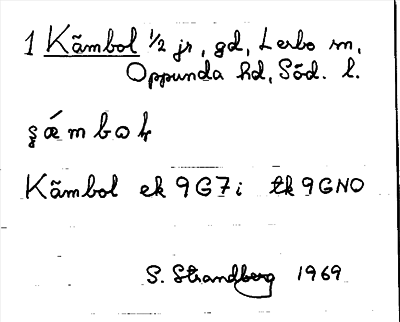 1 Kãmbol ½ jr, gd, Lerbo sn,
Oppunda hd, Söd. l.
Kãmbol ek 9G7i tk 9GNO
S. Strandberg 1969